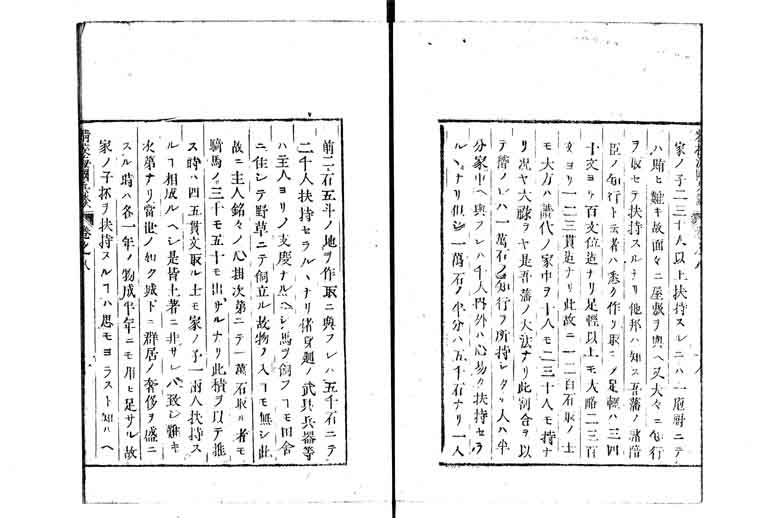 家ノ子二三十人以上扶持スルニハ一庖厨ニテ
ハ賄ヒ難キ故面々ニ屋敷ヲ與ヘ又夫々ニ知行
ヲ取セテ扶持スルナリ他邦ハ知ス吾藩ノ諸陪
臣ノ知行ト云者ハ悉ク作リ取ニメ足輕ハ三四
十文ヨリ百文位迄ナリ足輕以上モ大略二三百
文ヨリ一二三貫迄ナリ此故ニ一二百石取ノ士
モ大方ハ譜代ノ家中ヲ十人モ二三十人モ持ナ
リ况ヤ大祿ヲヤ是吾藩ノ大法ナリ此割合ヲ以
テ積ルノレハ一萬石ノ知行ヲ所持レタル人ハ半
分家中ヘ與フレハ千人内外ハ心易ク扶持セラ
ルヽナリ但シ一萬石ノ半分ハ五千石ナリ一人
前二石五斗ノ地ヲ作取ニ與フレハ五千石ニテ
二千人扶持セラルヽナリ偖身廻ノ武具兵器等
ハ主人ヨリノ支度ナルヘシ馬ヲ飼フコモ田舎
ニ住シテ野草ニテ飼立ル故物ノ入コモ無シ此
故ニ主人銘々ノ心掛次第ニテ一萬石取ル者モ
騎馬ノ三十モ五十モ出サルナリ此積ヲ以テ推
ス時ハ四五貫文取ル士モ家ノ子一兩人扶持ス
ルコ相成ルヘシ是皆土著ニ非サレハ致シ難キ
次第ナリ當世ノ如ク城下ニ群居メ奢侈ヲ盛ニ
スル時ハ各一年ノ物成半年ニモ用ヒ足サル故
家ノ子抔ヲ扶持スルコハ思モヨラスト知ヘ
卷之八